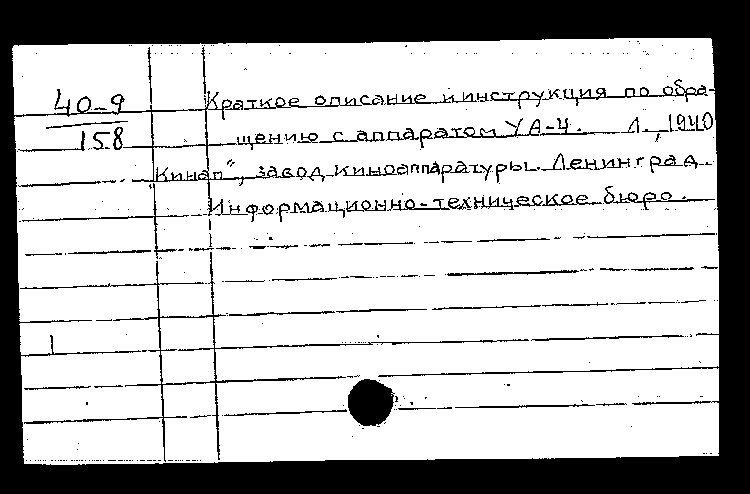 40-9
158
Краткое описание и инструкция по обра-
щению с аппаратом УА-4. Л., 1940
"Кинап", завод киноаппаратуры. Ленинград.
Информационно-техническое бюро.